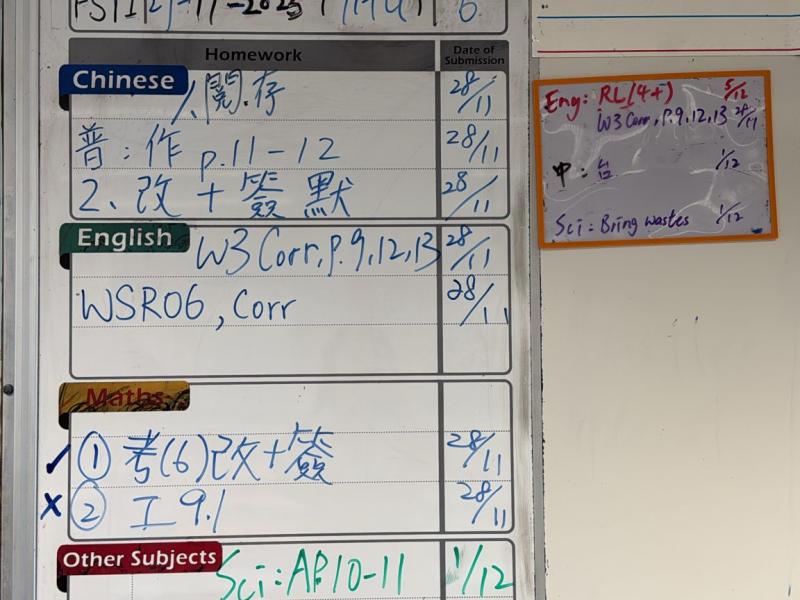 Homework Date of Submission
Chinese 1、閱.存 28/11
普：作 p.11-12 28/11
2、改+簽 默 28/11
English W3 Corr, P.9,12,13 28/11
WSR06, Corr 28/11
Maths
✓ ① 考(6)改+簽 28/11
x ② 工 9.1 28/11
Other Subjects Sci: AP.10-11 1/12
Eng: RL(4+) 5/12
W3 Corr, P.9,12,13 28/11
中: 1/12
Sci: Bring wastes 1/12